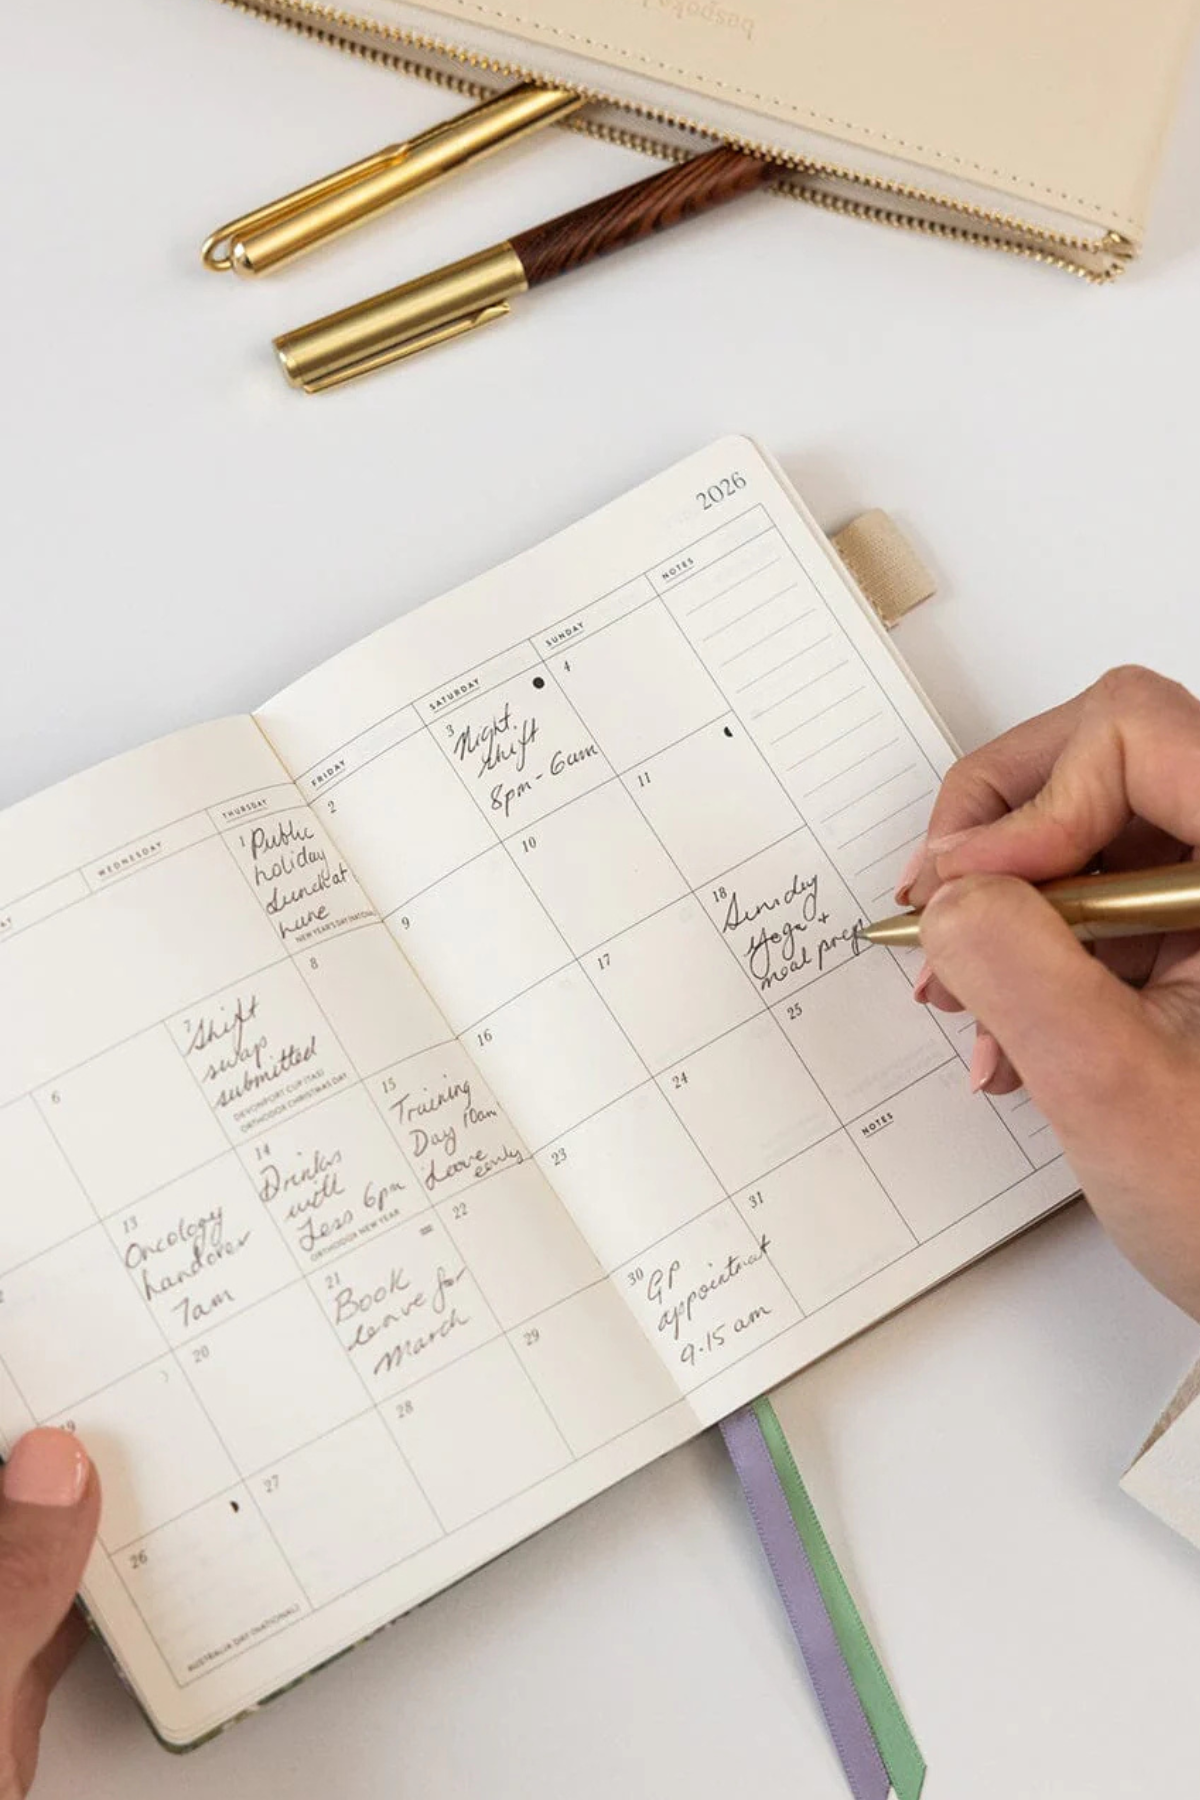 bespoke
2026
WEDNESDAY
THURSDAY
FRIDAY
SATURDAY
SUNDAY
NOTES
1
Public
holiday
Lunch at
NEW YEAR'S DAY
2
3
Night
shift
8pm - 6am
4
6
7
Shift
swap
submitted
DEVONPORT CUP (TAS)
ORTHODOX CHRISTMAS DAY
8
9
10
11
13
Oncology
handover
7am
14
Drinks
with
Jess 6pm
ORTHODOX NEW YEAR
15
Training
Day 10am
Leave
early
16
17
18
Sunday
yoga +
meal prep
19
20
21
Book
leave for
March
22
23
24
25
26
AUSTRALIA DAY (NATIONAL)
27
28
29
30
GP
appointmat
9.15 am
31
NOTES